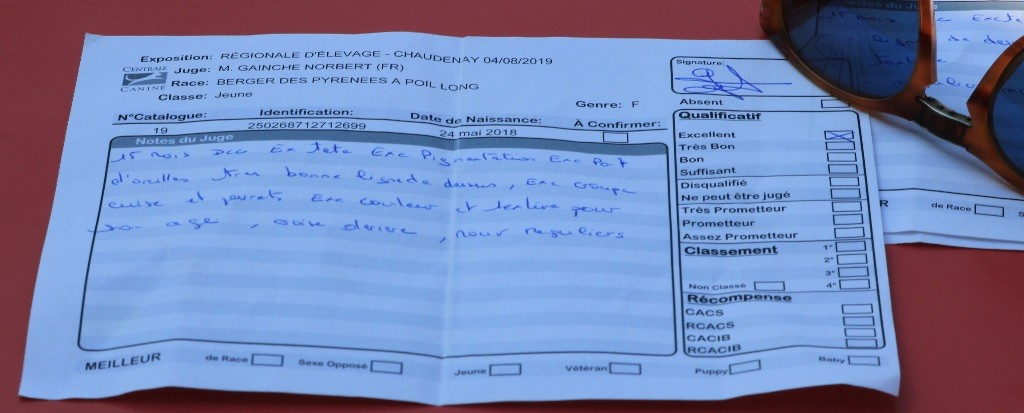 Exposition: RÉGIONALE D'ÉLEVAGE - CHAUDENAY 04/08/2019
CENTRALE CANINE
Juge: M. GAINCHE NORBERT (FR)
Race: BERGER DES PYRENEES A POIL LONG
Classe: Jeune
Genre: F
N°Catalogue: Identification: Date de Naissance: À Confirmer:
19 250268712712699 24 mai 2018
Notes du Juge
15 mois Exc tete Exc Pigmentation Exc Port
d'oreilles tres bonne ligne de dessus, Exc croupe
cuisse et jarrets Exc couleur et texture pour
son age, mvr reguliers
Signature:
Absent
Qualificatif
Excellent
Très Bon
Bon
Suffisant
Disqualifié
Ne peut être jugé
Très Prometteur
Prometteur
Assez Prometteur
Classement 1°
2°
3°
Non Classé 4°
Récompense
CACS
RCACS
CACIB
RCACIB
MEILLEUR de Race Sexe Opposé Jeune Vétéran Puppy Baby
Notes du Juge
15 mois
de Race